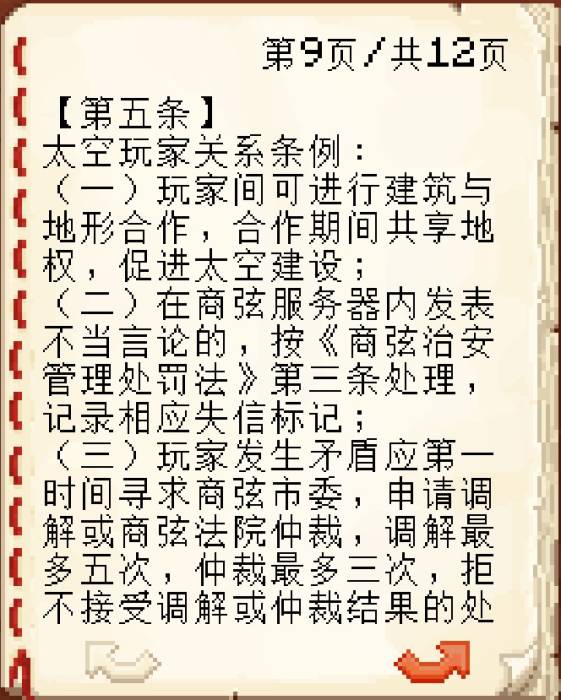 第9页/共12页
【第五条】
太空玩家关系条例：
（一）玩家间可进行建筑与
地形合作，合作期间共享地
权，促进太空建设；
（二）在商弦服务器内发表
不当言论的，按《商弦治安
管理处罚法》第三条处理，
记录相应失信标记；
（三）玩家发生矛盾应第一
时间寻求商弦市委，申请调
解或商弦法院仲裁，调解最
多五次，仲裁最多三次，拒
不接受调解或仲裁结果的处